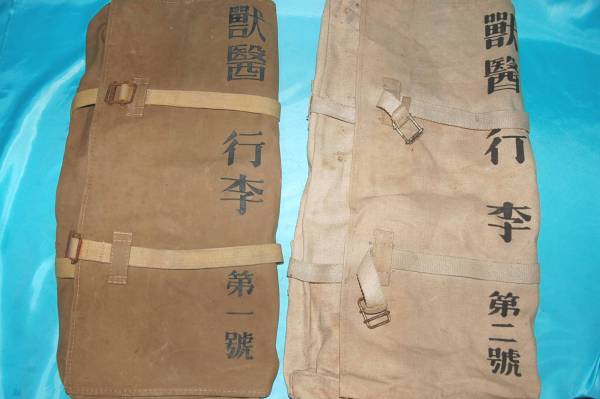 獸醫行李第一號
獸醫行李第二號